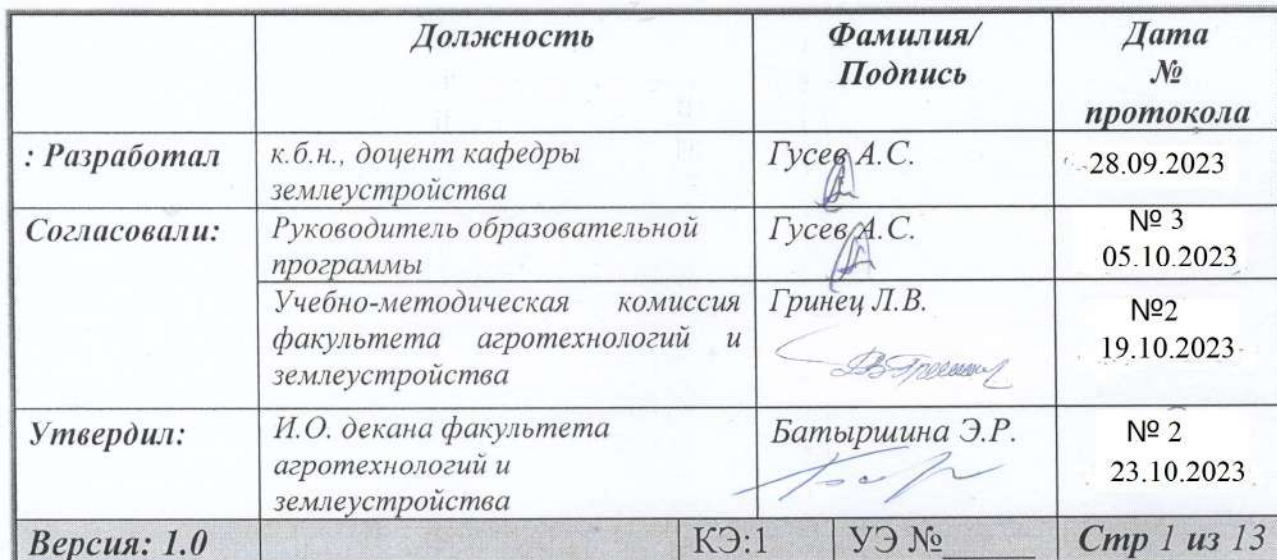 Должность
Фамилия/
Подпись
Дата
№
протокола
: Разработал
к.б.н., доцент кафедры
землеустройства
Гусев А.С.
28.09.2023
Согласовали:
Руководитель образовательной
программы
Гусев А.С.
№ 3
05.10.2023
Учебно-методическая комиссия
факультета агротехнологий и
землеустройства
Гринец Л.В.
№2
19.10.2023
Утвердил:
И.О. декана факультета
агротехнологий и
землеустройства
Батыршина Э.Р.
№ 2
23.10.2023
Версия: 1.0
КЭ:1
УЭ №______
Стр 1 из 13